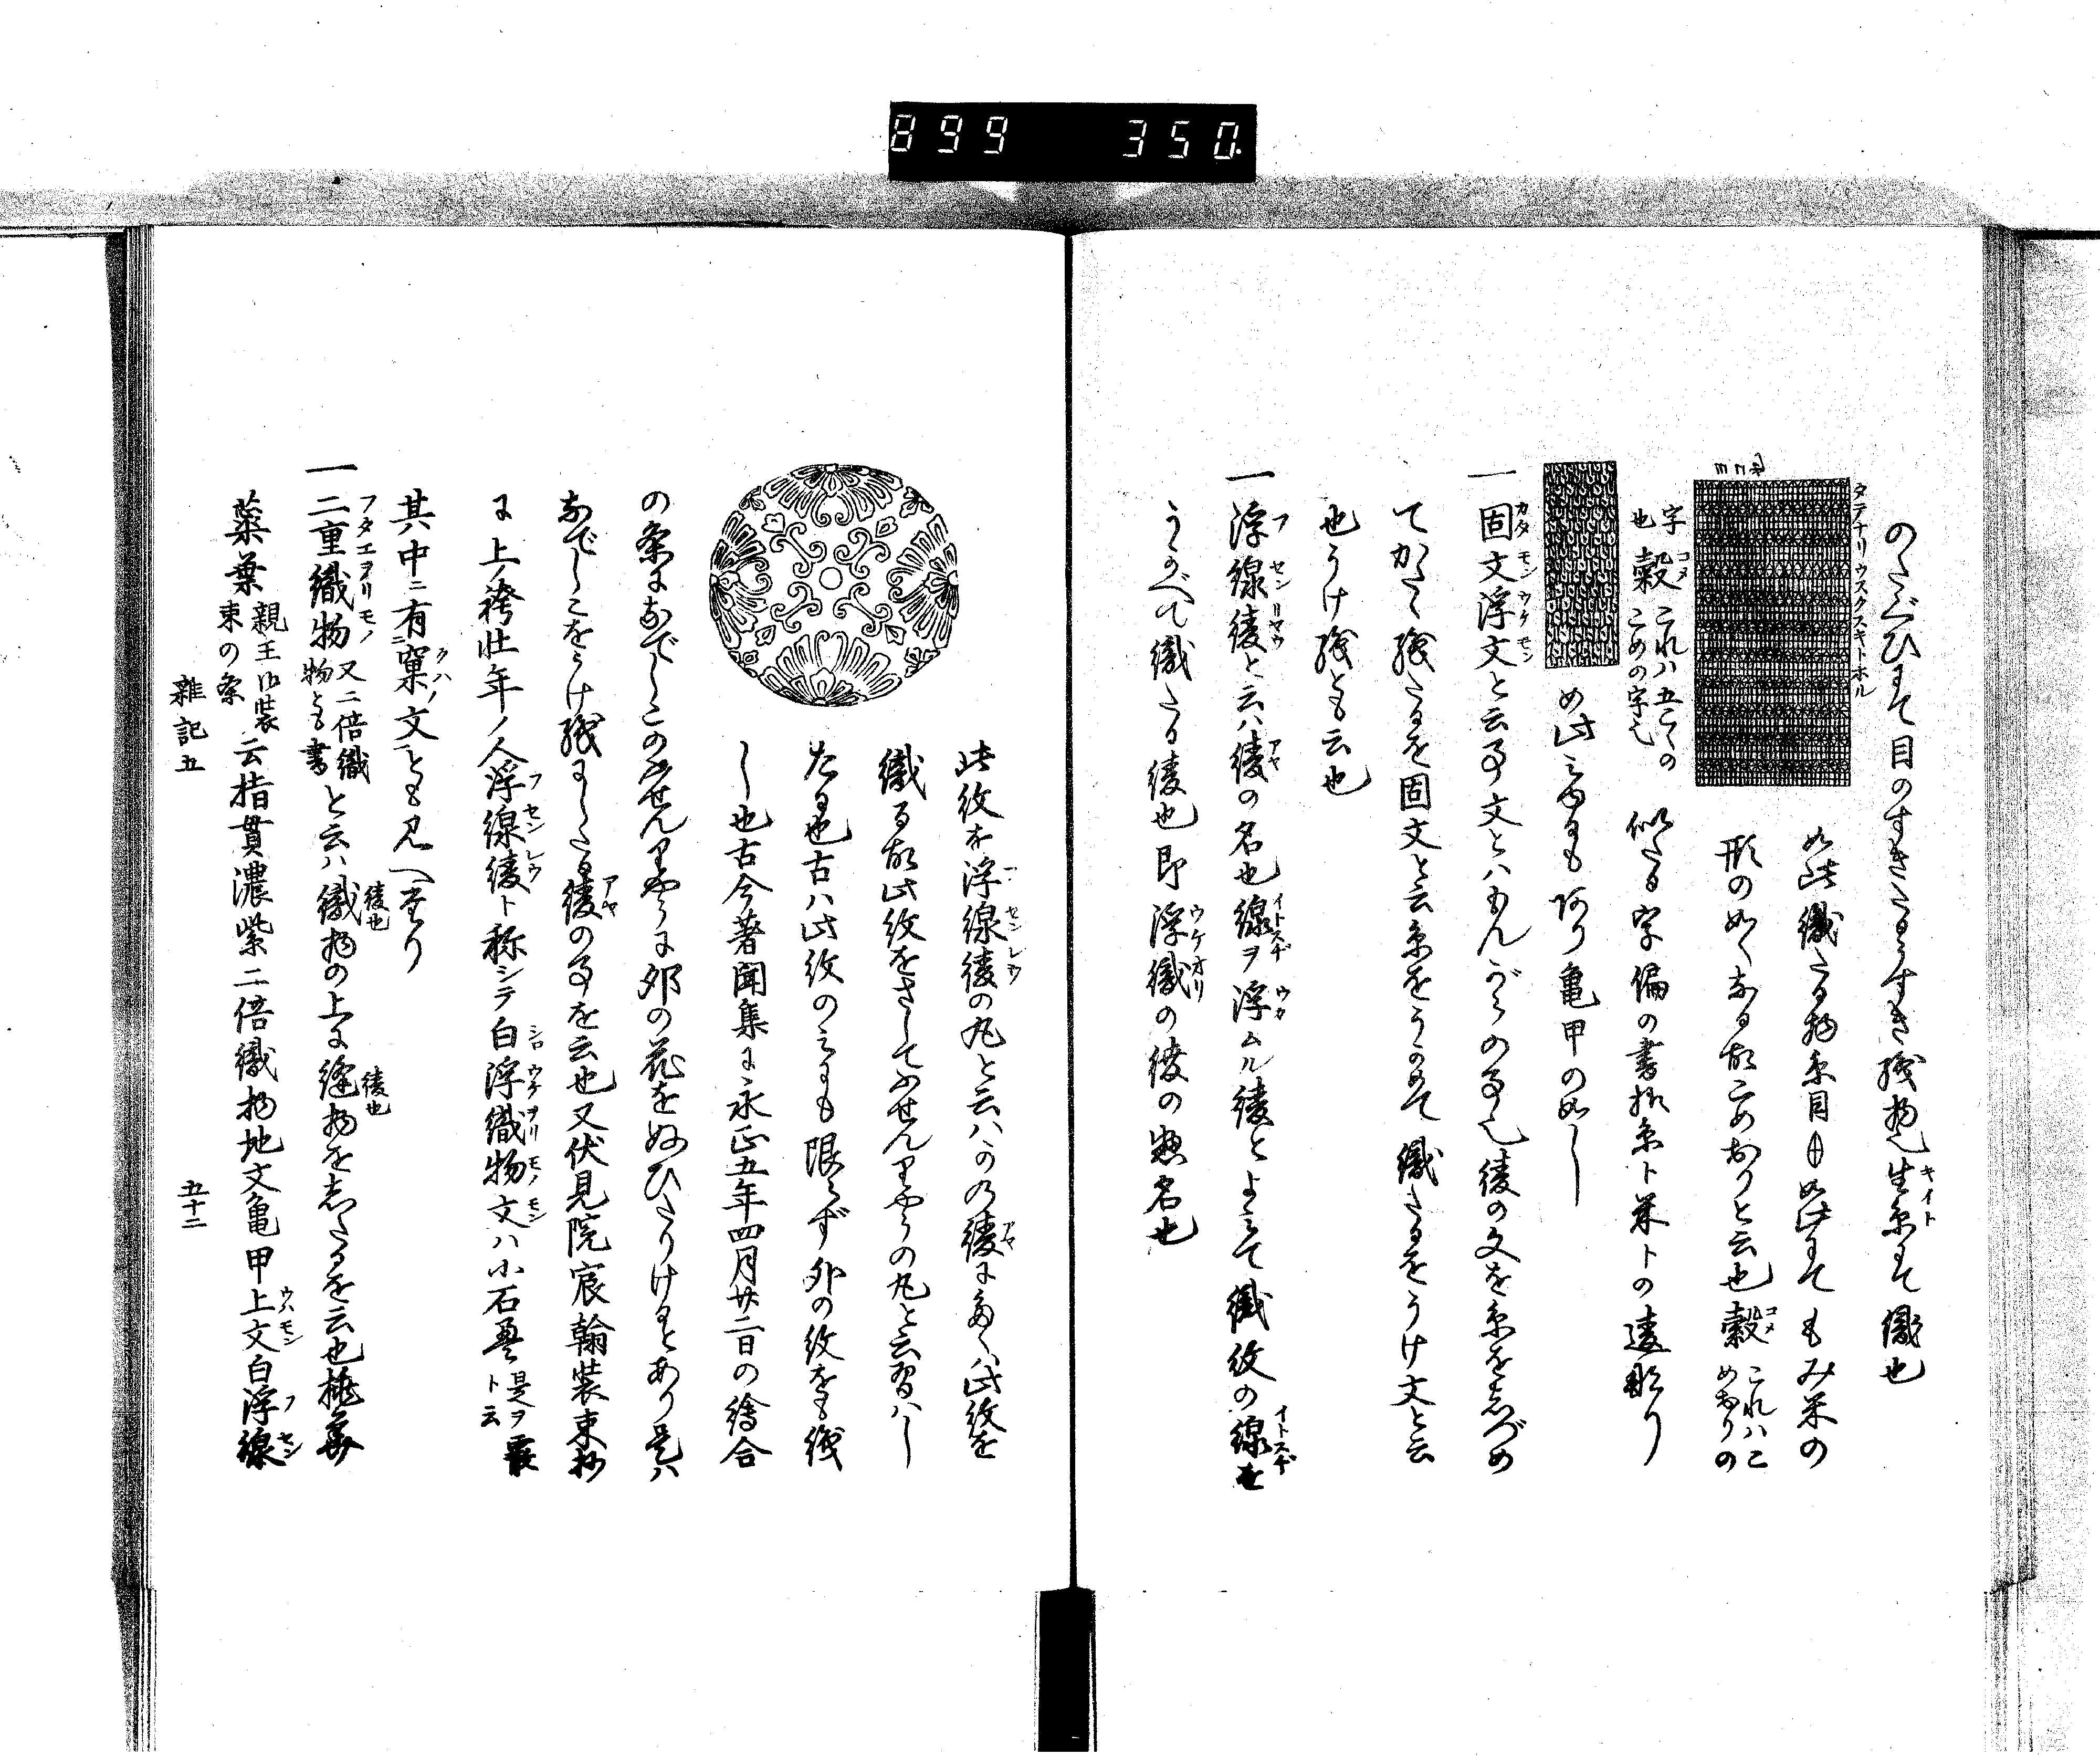 899 350
のたぐひにて目のすきたるうすき織物也生糸にて織也
タテナリウスクスキトホル
如此織たる物糸目如此にてもみ米の
形の如くなる故こめおりと云也縠これハこめおりの
字也 穀これハ五こくのこめの字也 似たる字偏の書様糸ト米トの違有り
め此こめも有り亀甲の如し
一固文浮文と云事文とハもんがらの事也綾の文を糸をしづめ
てかたく織たるを固文と云糸をうかめて織たるをうけ文と云
也うけ織とも云也
一浮線綾と云ハ綾の名也線ヲ浮ムル綾とよみて織紋の線を
うかべて織たる綾也即浮織の綾の惣名也
此紋を浮線綾の丸と云ハかの綾に多く此紋を
織る故此紋をさしてふせんりやうの丸と云習ハし
たる也古ハ此紋のミにも限らず外の紋をも織
し也古今著聞集に永正五年四月廿二日の繪合
の条になでしこのふせんりやうに卯の花をぬひたりけるとあり是ハ
なでしこをうけ織にしたる綾の事を云也又伏見院宸翰装束抄
に上ノ袴壮年ノ人浮線綾ト称シテ白浮織物文ハ小石畳是ヲ霰ト云
其中ニ有窠ノ文とも見へたり
一二重織物又二倍織物とも書と云ハ織物の上に縫物をしたるを云也桃華
蘂葉親王御装束の条云指貫濃紫二倍織物地文亀甲上文白浮線
雑記五
五十二